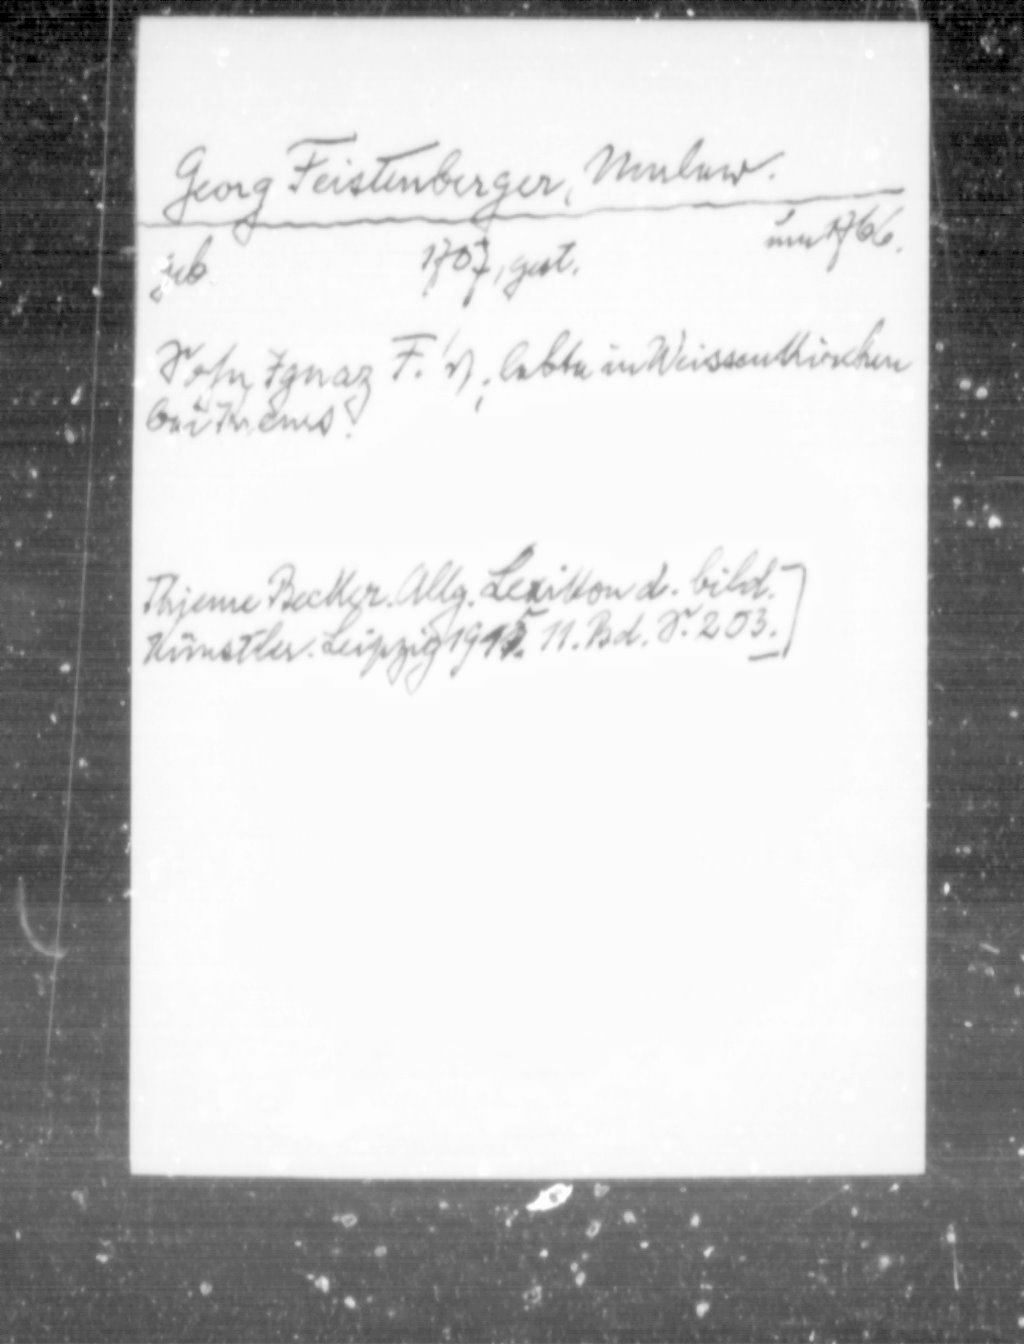 Georg Feistenberger, Maler.
geb 1707, gest. um 1766.
Sohn Ignaz F.'s, lebte in Weissenkirchen
bei Krems.
Thieme Becker. Allg. Lexikon d. bild.
Künstler. Leipzig 1915. 11. Bd. S. 203.